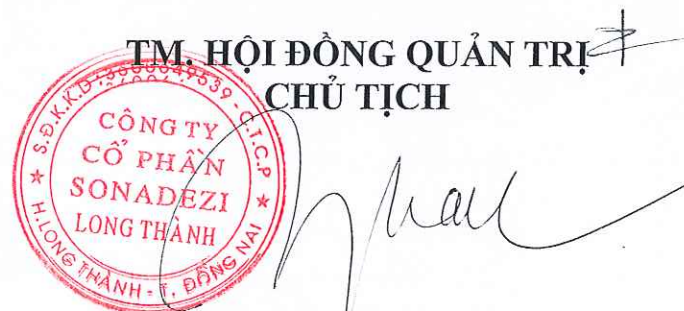 TM. HỘI ĐỒNG QUẢN TRỊ
CHỦ TỊCH
S.Đ.K.K.D: - C.T.C.P
CÔNG TY
CỔ PHẦN
SONADEZI
LONG THÀNH
H.LONG THÀNH - T. ĐỒNG NAI